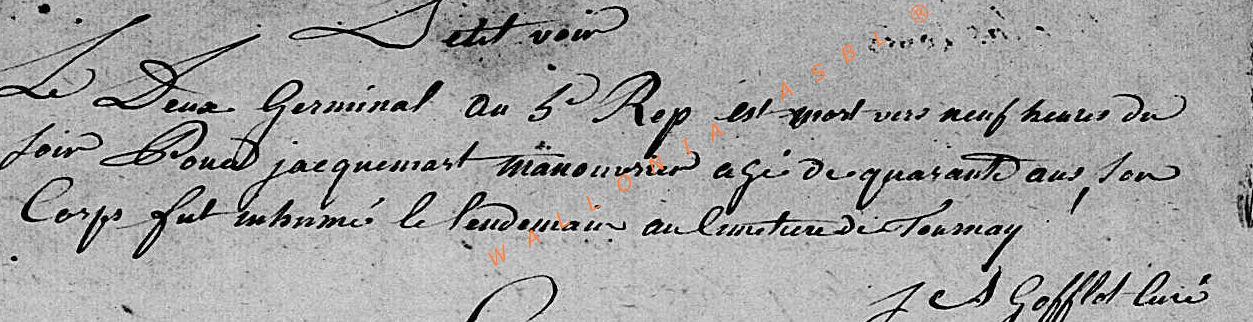 Petit voir
Le Deux Germinal an 5e Rep est mort vers neuf heures du
soir jacquemart manouvrier agé de quarante ans, son
Corps fut inhumé le lendemain au Cimetiere de Tournay
WALLONIA ASBL ®
J Gofflot Curé